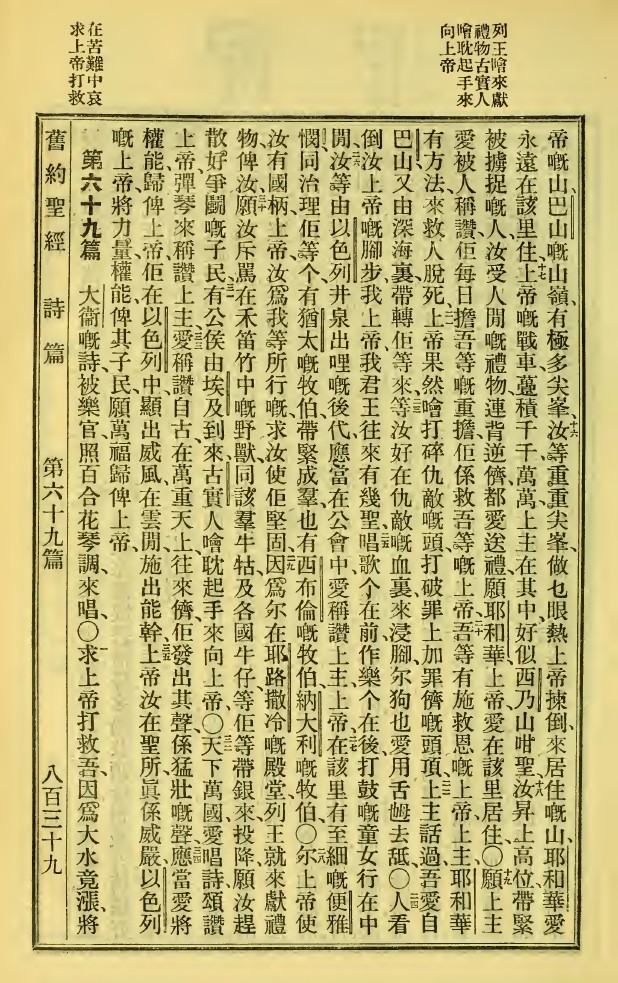 列王噲來獻
禮物古實人
噲耽起手來
向上帝
在苦難中哀
求上帝打救
帝嘅山巴山嘅山嶺有極多尖峯汝等重重尖峯做乜眼熱上帝揀倒來居住嘅山耶和華愛
永遠在該里住上帝嘅戰車蔓積千千萬萬上主在其中好似西乃山咁聖汝昇上高位帶緊
被擄捉嘅人汝受人閒嘅禮物連背逆儕都愛送禮願耶和華上帝愛在該里居住〇願上主
愛被人稱讚佢每日擔吾等嘅重擔佢係救吾等嘅上帝吾等有施救恩嘅上帝上主耶和華
有方法來救人脫死上帝果然噲打碎仇敵嘅頭打破罪上加罪儕嘅頭頂上主話過吾愛自
巴山又由深海裏帶轉佢等來等汝好在仇敵嘅血裏來浸腳尔狗也愛用舌𫱔去舐〇人看
倒汝上帝嘅腳步我上帝我君王往來有幾聖唱歌个在前作樂个在後打鼓嘅童女行在中
閒汝等由以色列井泉出哩嘅後代應當在公會中愛稱讚上主上帝在該里有至細嘅便雅
憫同治理佢等个有猶太嘅牧伯帶緊成羣也有西布倫嘅牧伯納大利嘅牧伯〇尔上帝使
汝有國柄上帝汝爲我等所行嘅求汝使佢堅固因爲尔在耶路撒冷嘅殿堂列王就來獻禮
物俾汝願汝斥罵在禾笛竹中嘅野獸同該羣牛牯及各國牛仔等佢等帶銀來投降願汝趕
散好爭鬬嘅子民有公侯由埃及到來古實人噲耽起手來向上帝〇天下萬國愛唱詩頌讚
上帝彈琴來稱讚上主愛稱讚自古在萬重天上往來儕佢發出其聲係猛壯嘅聲應當愛將
權能歸俾上帝佢在以色列中顯出威風在雲閒施出能幹上帝汝在聖所眞係威嚴以色列
嘅上帝將力量權能俾其子民願萬福歸俾上帝
第六十九篇 大衞嘅詩被樂官照百合花琴調來唱〇求上帝打救吾因爲大水竟漲將
舊約聖經 詩篇 第六十九篇 八百三十九